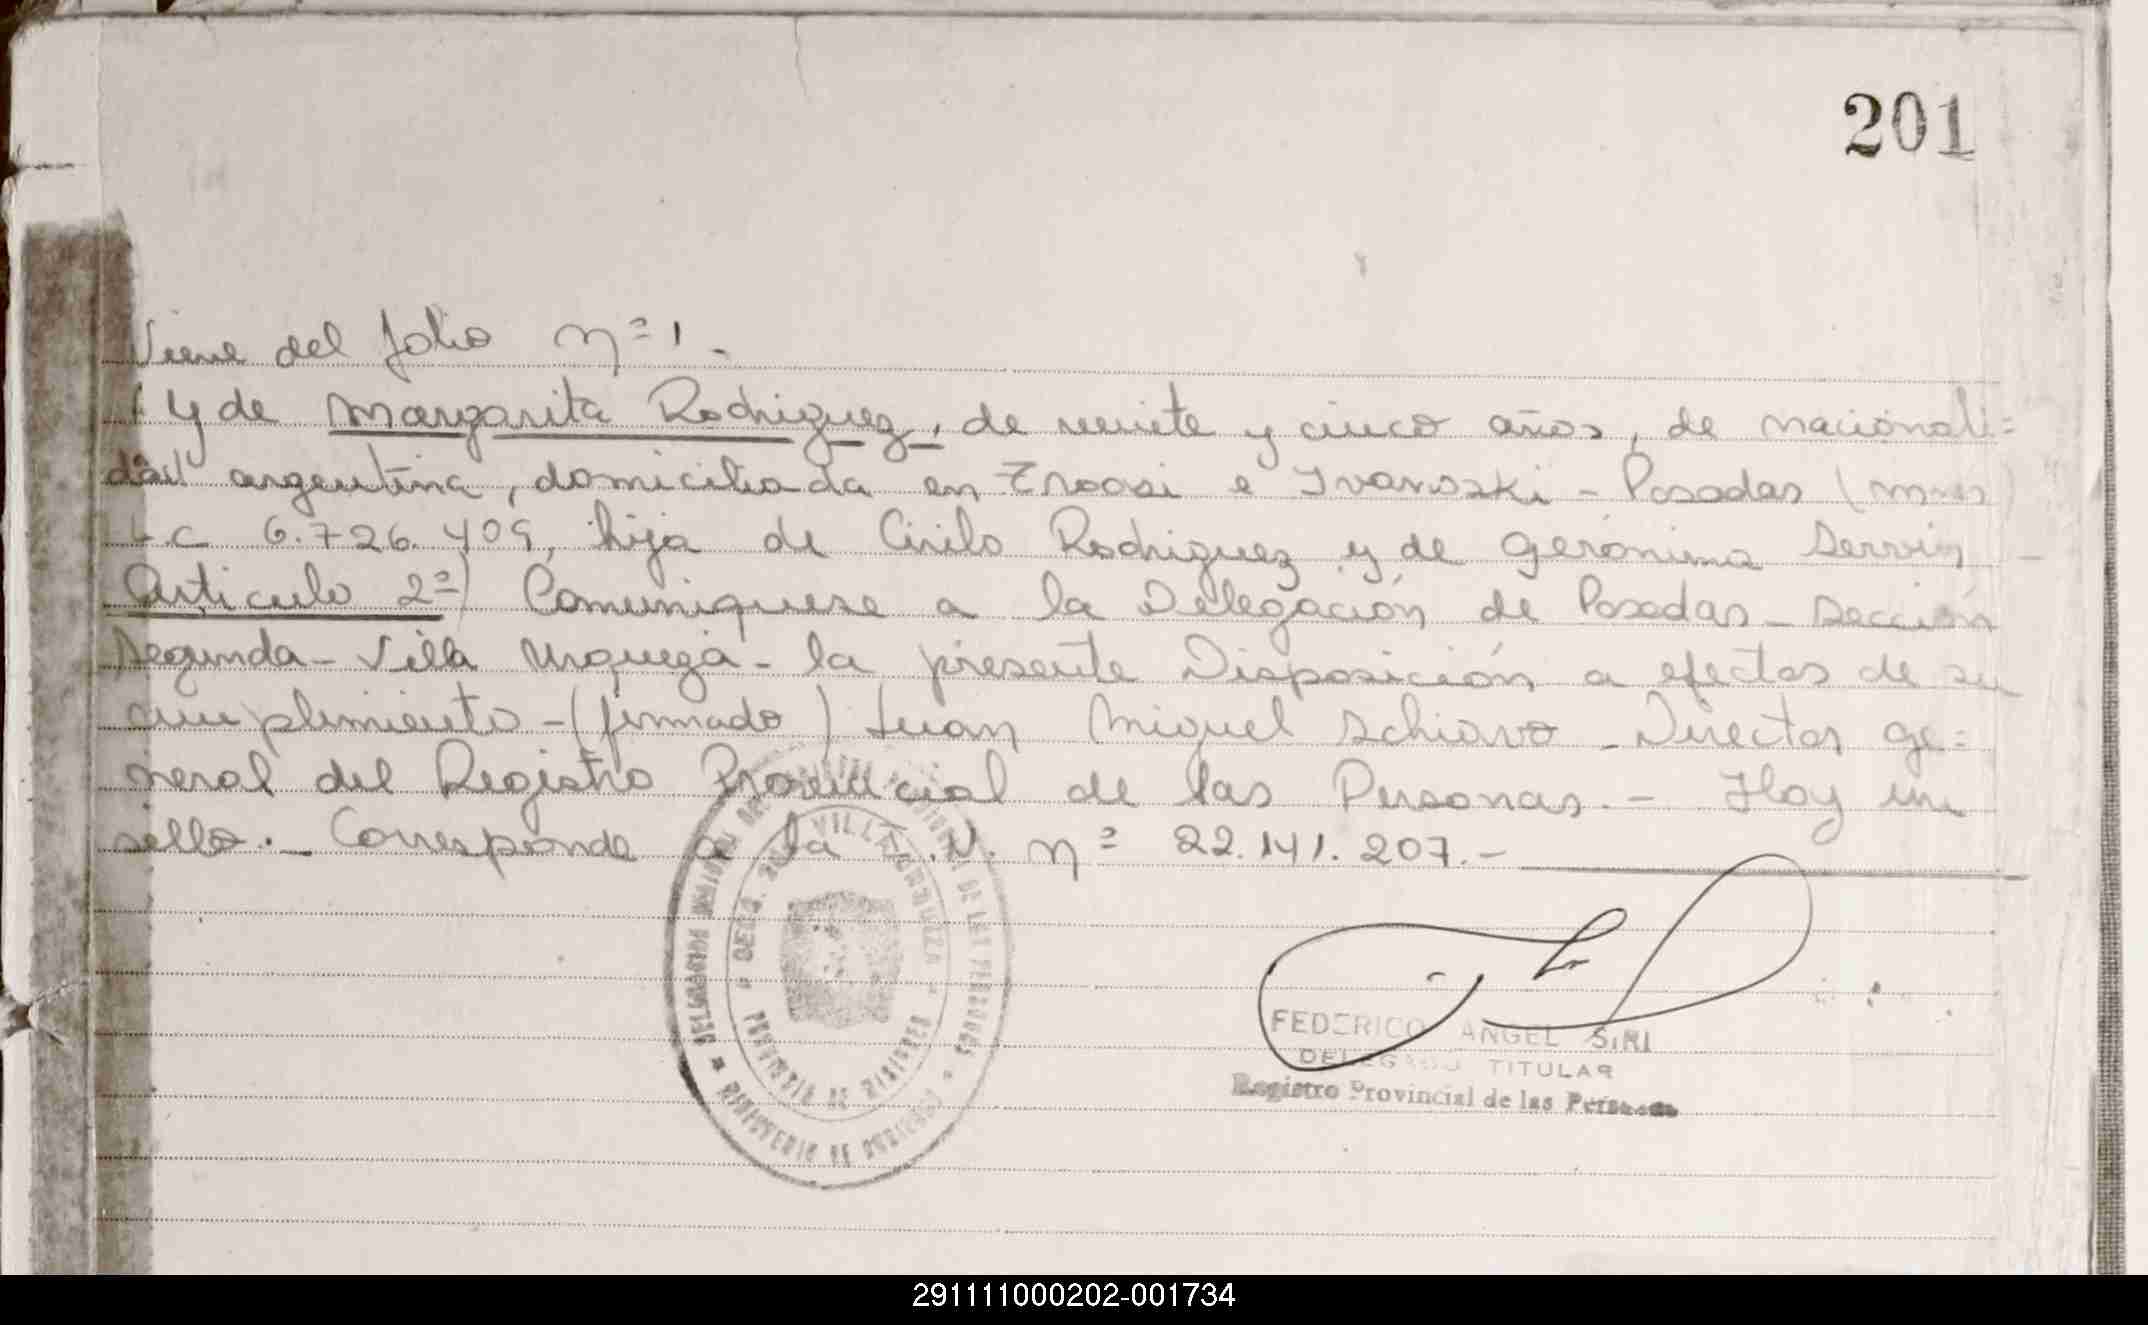 201
Viene del folio Nº 1.-
Y de Margarita Rodriguez, de veinte y cinco años, de nacionali=
dad argentina, domiciliada en e Ivanoski - Posadas (Mnes)
L.C 6.726.409, hija de Cirilo Rodriguez y de Gerónima Servin -
Articulo 2º) Comuniquese a la Delegación de Posadas - Sección
Segunda - Villa Urquiza - la presente Disposición a efectos de su
cumplimiento - (firmado) Juan Miguel Schiavo - Director Ge=
neral del Registro Provincial de las Personas. - Hay un
sello. - Corresponde a la Nº 22.141.207.-
VILLA URQUIZA
PROVINCIA DE MISIONES
MINISTERIO DE GOBIERNO
FEDERICO ANGEL SIRI
DELEGADO TITULAR
Registro Provincial de las Personas
291111000202-001734